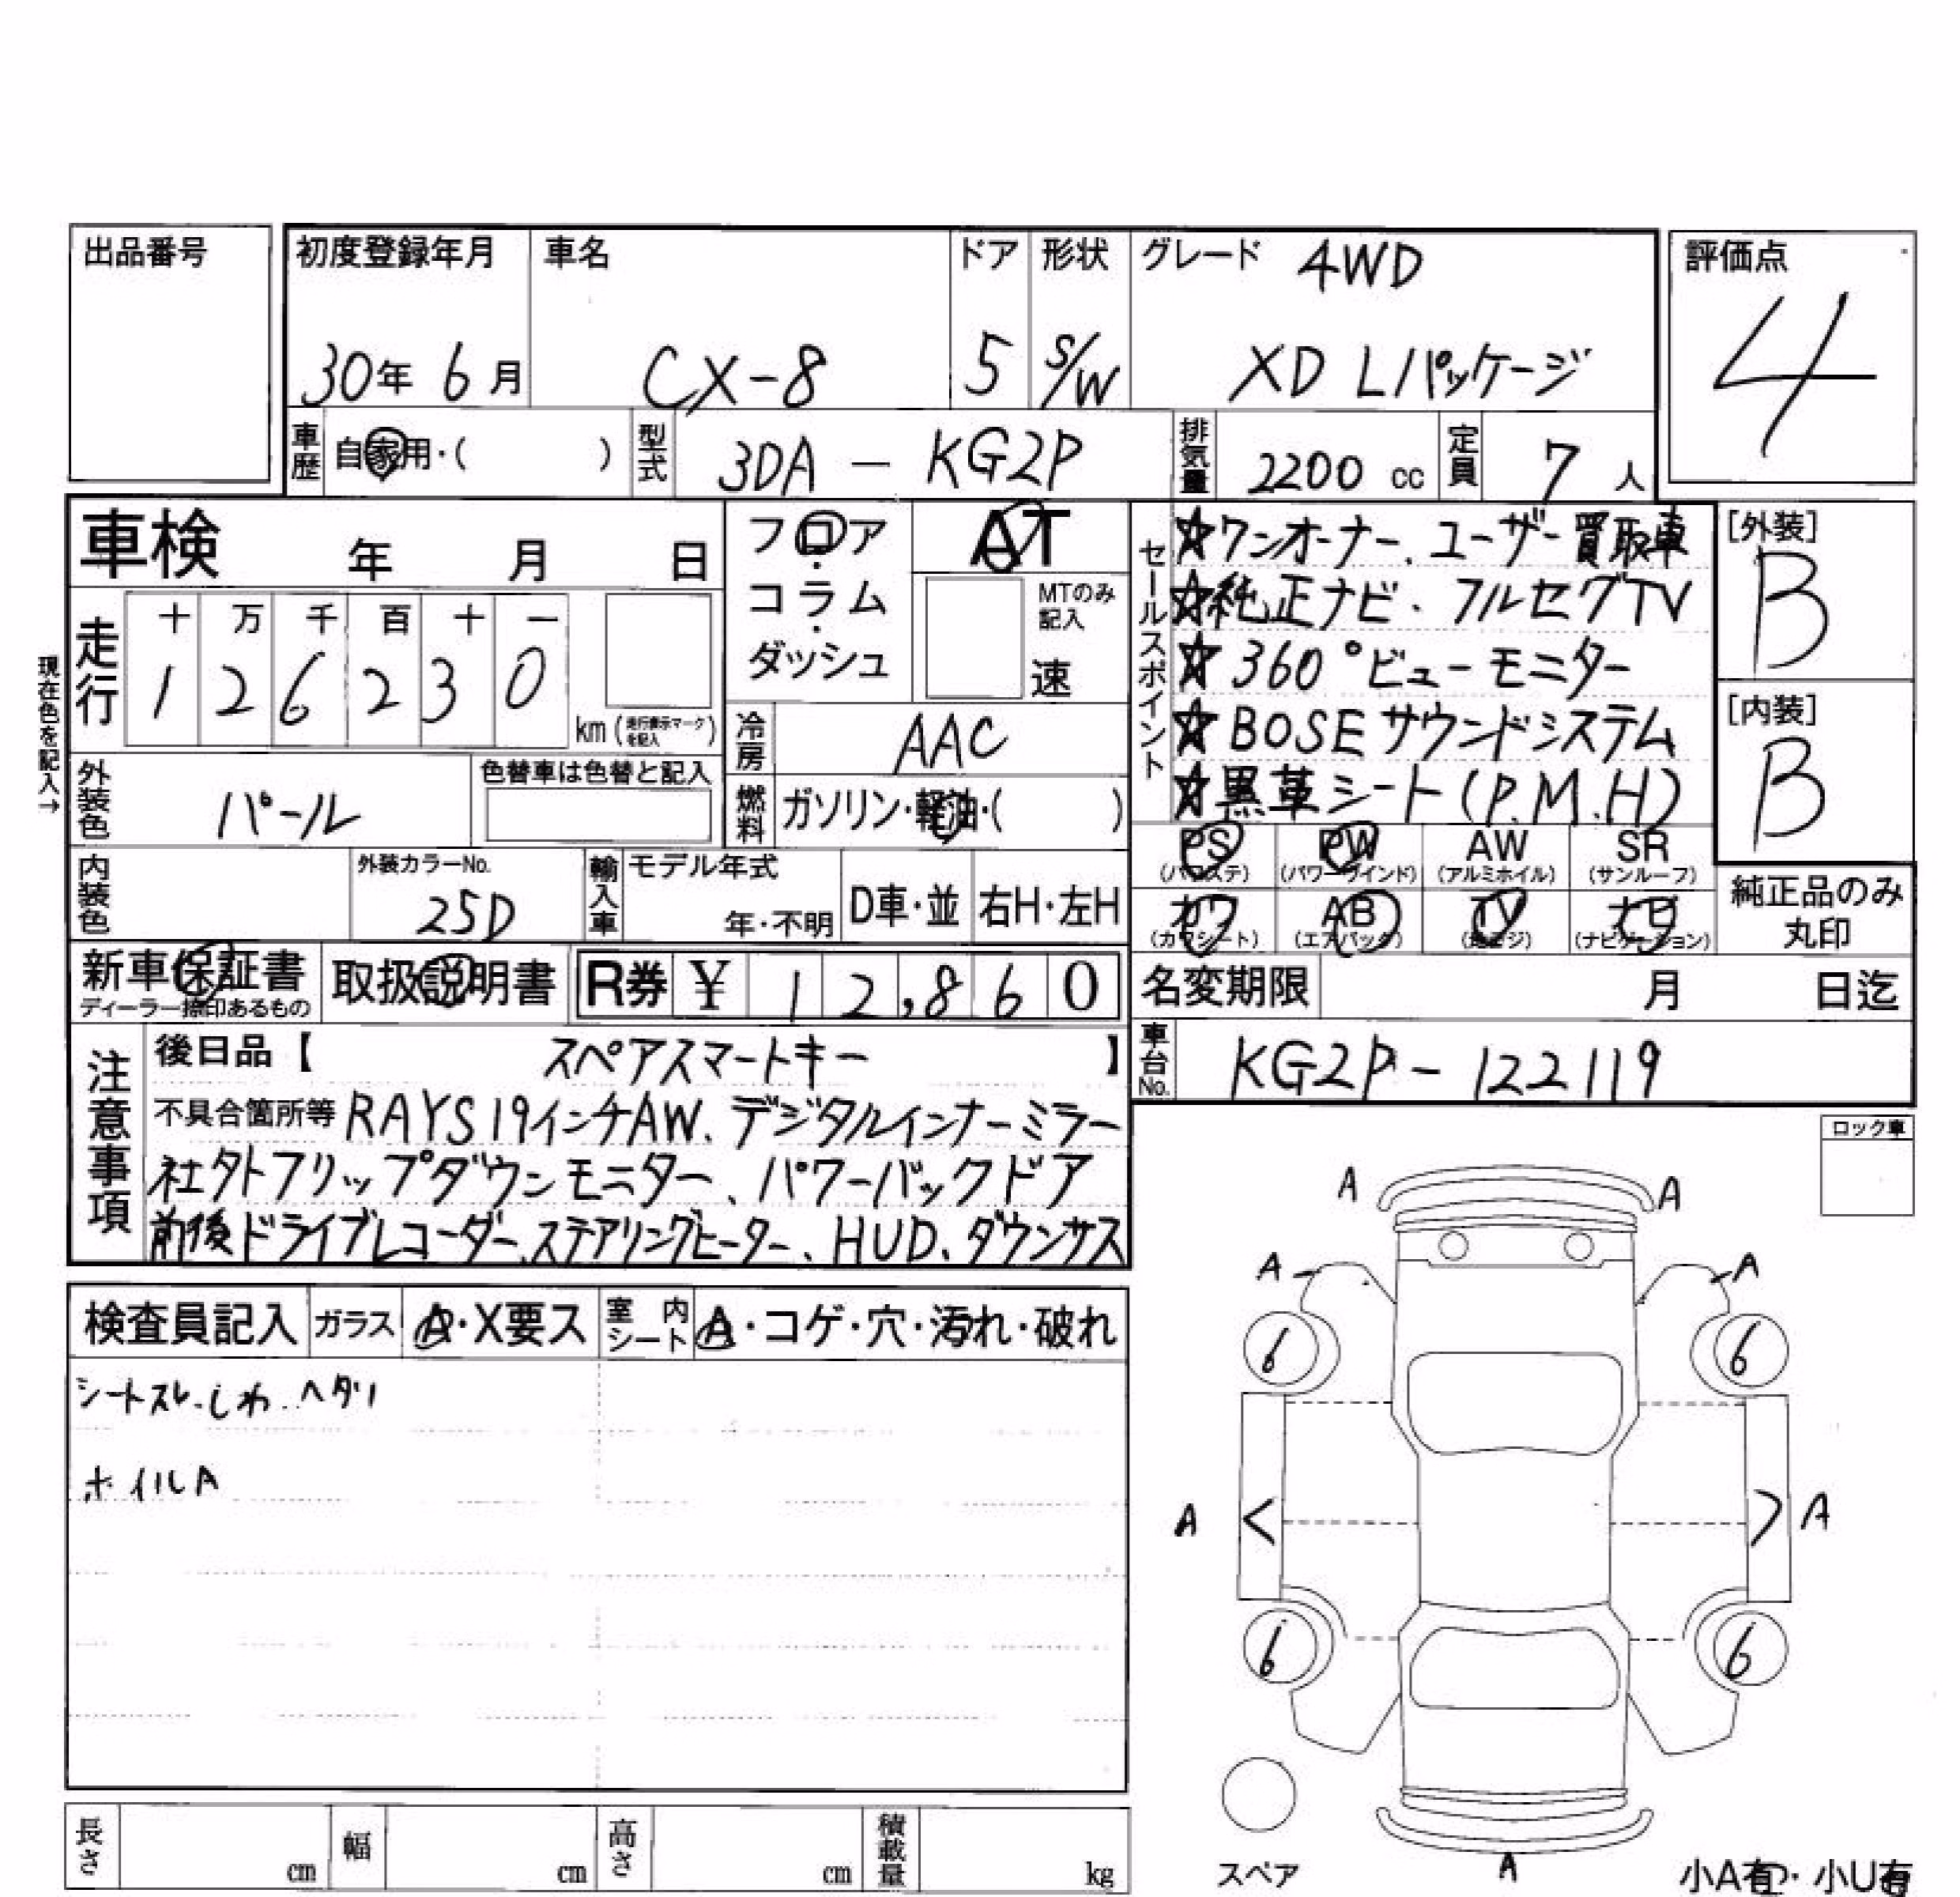 出品番号
初度登録年月 車名 ドア 形状 グレード 4WD 評価点
30年 6月 CX-8 5 S/W XD Lパッケージ 4
車歴 自家用・( ) 型式 3DA - KG2P 排気量 2200 cc 定員 7 人
車検 年 月 日
現在色を記入→
走行 十 万 千 百 十 一
1 2 6 2 3 0 km (走行表示マークを記入)
フロア・コラム・ダッシュ
AT
MTのみ記入
速
冷房 AAC
外装色 パール 色替車は色替と記入
燃料 ガソリン・軽油・( )
内装色 外装カラーNo. 25D 輸入車 モデル年式 年・不明 D車・並 右H・左H
セールスポイント
☆ワンオーナー、ユーザー買取車
☆純正ナビ・フルセグTV
☆360°ビューモニター
☆BOSEサウンドシステム
☆黒革シート(P.M.H)
[外装] B
[内装] B
PS (パワステ) PW (パワーウインド) AW (アルミホイル) SR (サンルーフ)
カワ (カワシート) AB (エアバック) TV (地デジ) ナビ (ナビゲーション)
純正品のみ丸印
新車保証書 ディーラー捺印あるもの 取扱説明書 R券 ¥ 12,860
名変期限 月 日迄
車台No. KG2P-122119
注意事項
後日品【 スペアスマートキー 】
不具合箇所等 RAYS19インチAW、デジタルインナーミラー
社外フリップダウンモニター、パワーバックドア
前後ドライブレコーダー、ステアリングヒーター、HUD、ダウンサス
検査員記入 ガラス A・X要ス 室内シート A・コゲ・穴・汚れ・破れ
シートスレ、しわ、ヘタリ
ホイルA
ロック車
A A
A A
6 6
A < > A
6 6
スペア A 小A有・小U有
長さ cm 幅 cm 高さ cm 積載量 kg